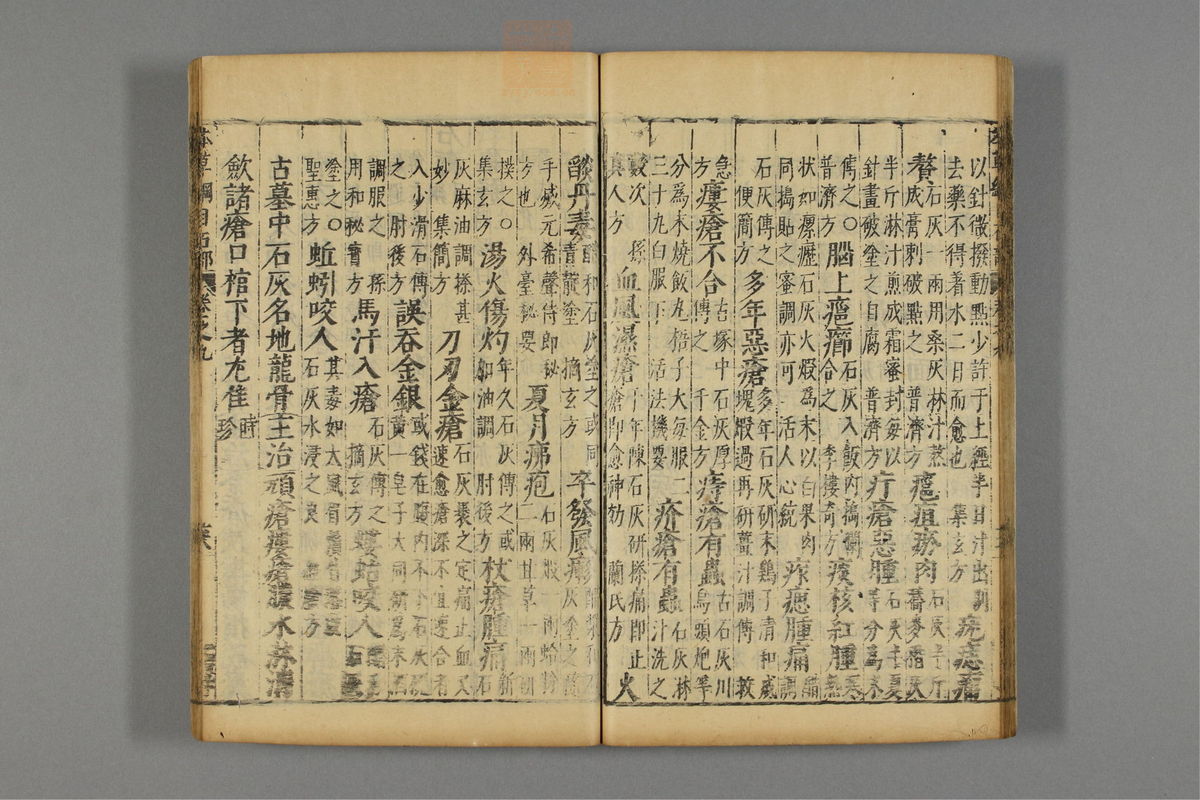 以針微撥動點少許于上經半日汁出剔去藥不得着水二日而愈也 集玄方 疣痣瘤
贅 石灰一兩用桑灰淋汁熬成膏刺破點之 普濟方 瘡疽瘀肉 石灰半斤蕎麥秸灰
半斤淋汁煎成霜密封每以針畫破塗之自腐 普濟方 疔瘡惡腫 石灰半夏等分為末
傅之○普濟方 腦上癰癤 石灰入飯內搗爛合之 李樓奇方 痰核紅腫 寒熱
狀如瘰癧石灰火煅為末以白果肉同搗貼之蜜調亦可 活人心統 痄腮腫痛 醋調
石灰傅之 簡便方 多年惡瘡 多年石灰研末雞子清和成塊煅過再研薑汁調傅 救
急方 瘻瘡不合 古塚中石灰厚傅之 千金方 痔瘡有蟲 古石灰川烏頭炮等
分為末燒飯丸梧子大每服二三十九白服下 活法機要 疥瘡有蟲 石灰淋汁洗之
數次 孫真人方 血風濕瘡 千年陳石灰研搽痛即止瘡即愈神効 蘭氏方 火
燄丹毒 醋和石灰塗之或同青靛塗 摘玄方 卒發風
手臧元希聲侍郎秘方也 外臺秘要 夏月痱疱 石灰煅一兩蛤粉二兩甘草一兩研
撲之○集玄方 湯火傷灼 年久石灰傅之或加油調 肘後方 杖瘡腫痛 新石
灰麻油調搽甚妙 集簡方 刀刃金瘡 石灰裹之定痛止血又速愈瘡深不宜速合者
入少滑石傅之 肘後方 誤吞金銀 或錢在腹內不下石灰黃一皂子大同研為末
調服之 孫用和秘寶方 馬汗入瘡 石灰傅之 摘玄方 螻蛄咬人
塗之○聖惠方 蚯蚓咬人 其毒如大風眉鬚皆落石灰水浸之良
古墓中石灰名地龍骨 主治頑瘡瘻瘡膿水淋漓
歛諸瘡口棺下者尤佳 時珍
本草綱目石部 卷之九